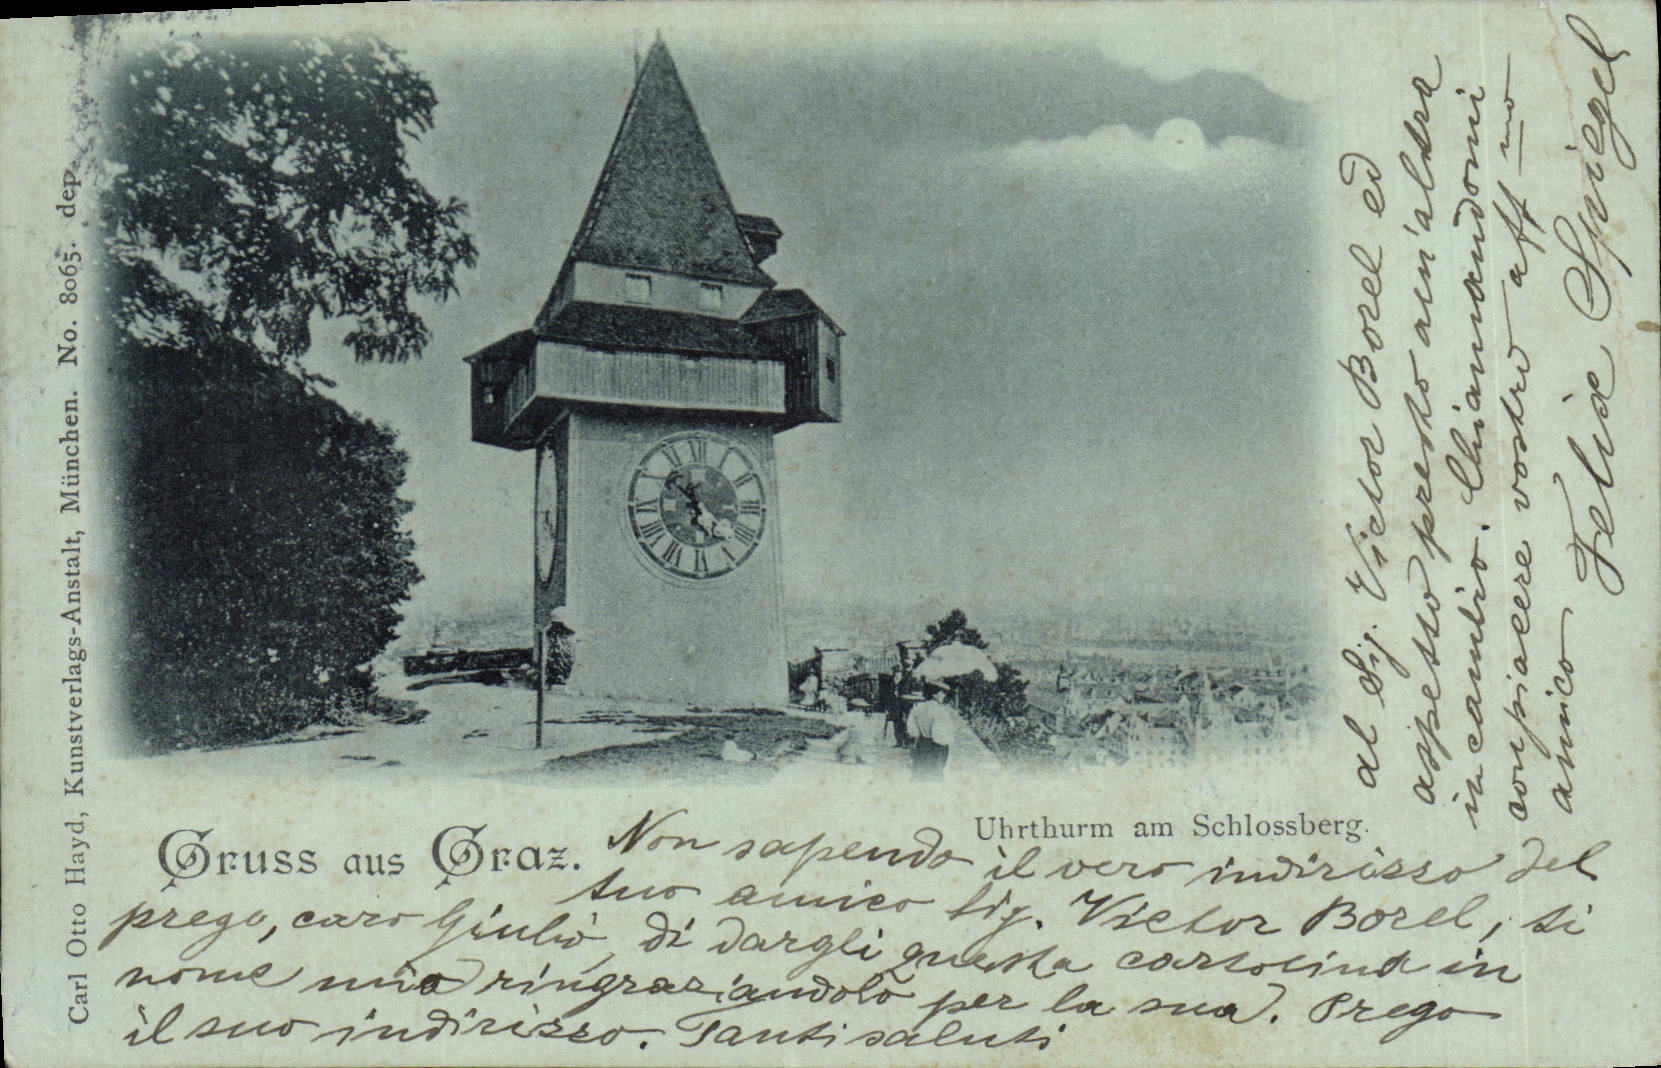 Carl Otto Hayd, Kunstverlags-Anstalt, München. No. 8065. dep.
Gruss aus Graz.
Uhrthurm am Schlossberg.
Non sapendo il vero indirisso del
tuo amico Sig. Victor Borel, ti
prego, caro Giulio, di dargli questa cartolina in
nome mio ringraziandolo per la sua. Prego
il suo indirisso. Tanti saluti
al Sig. Victor Borel ed
aspetto presto un'altra
in cambio. Chiamandomi
compiacere vostro aff mo
amico Felix Spiegel